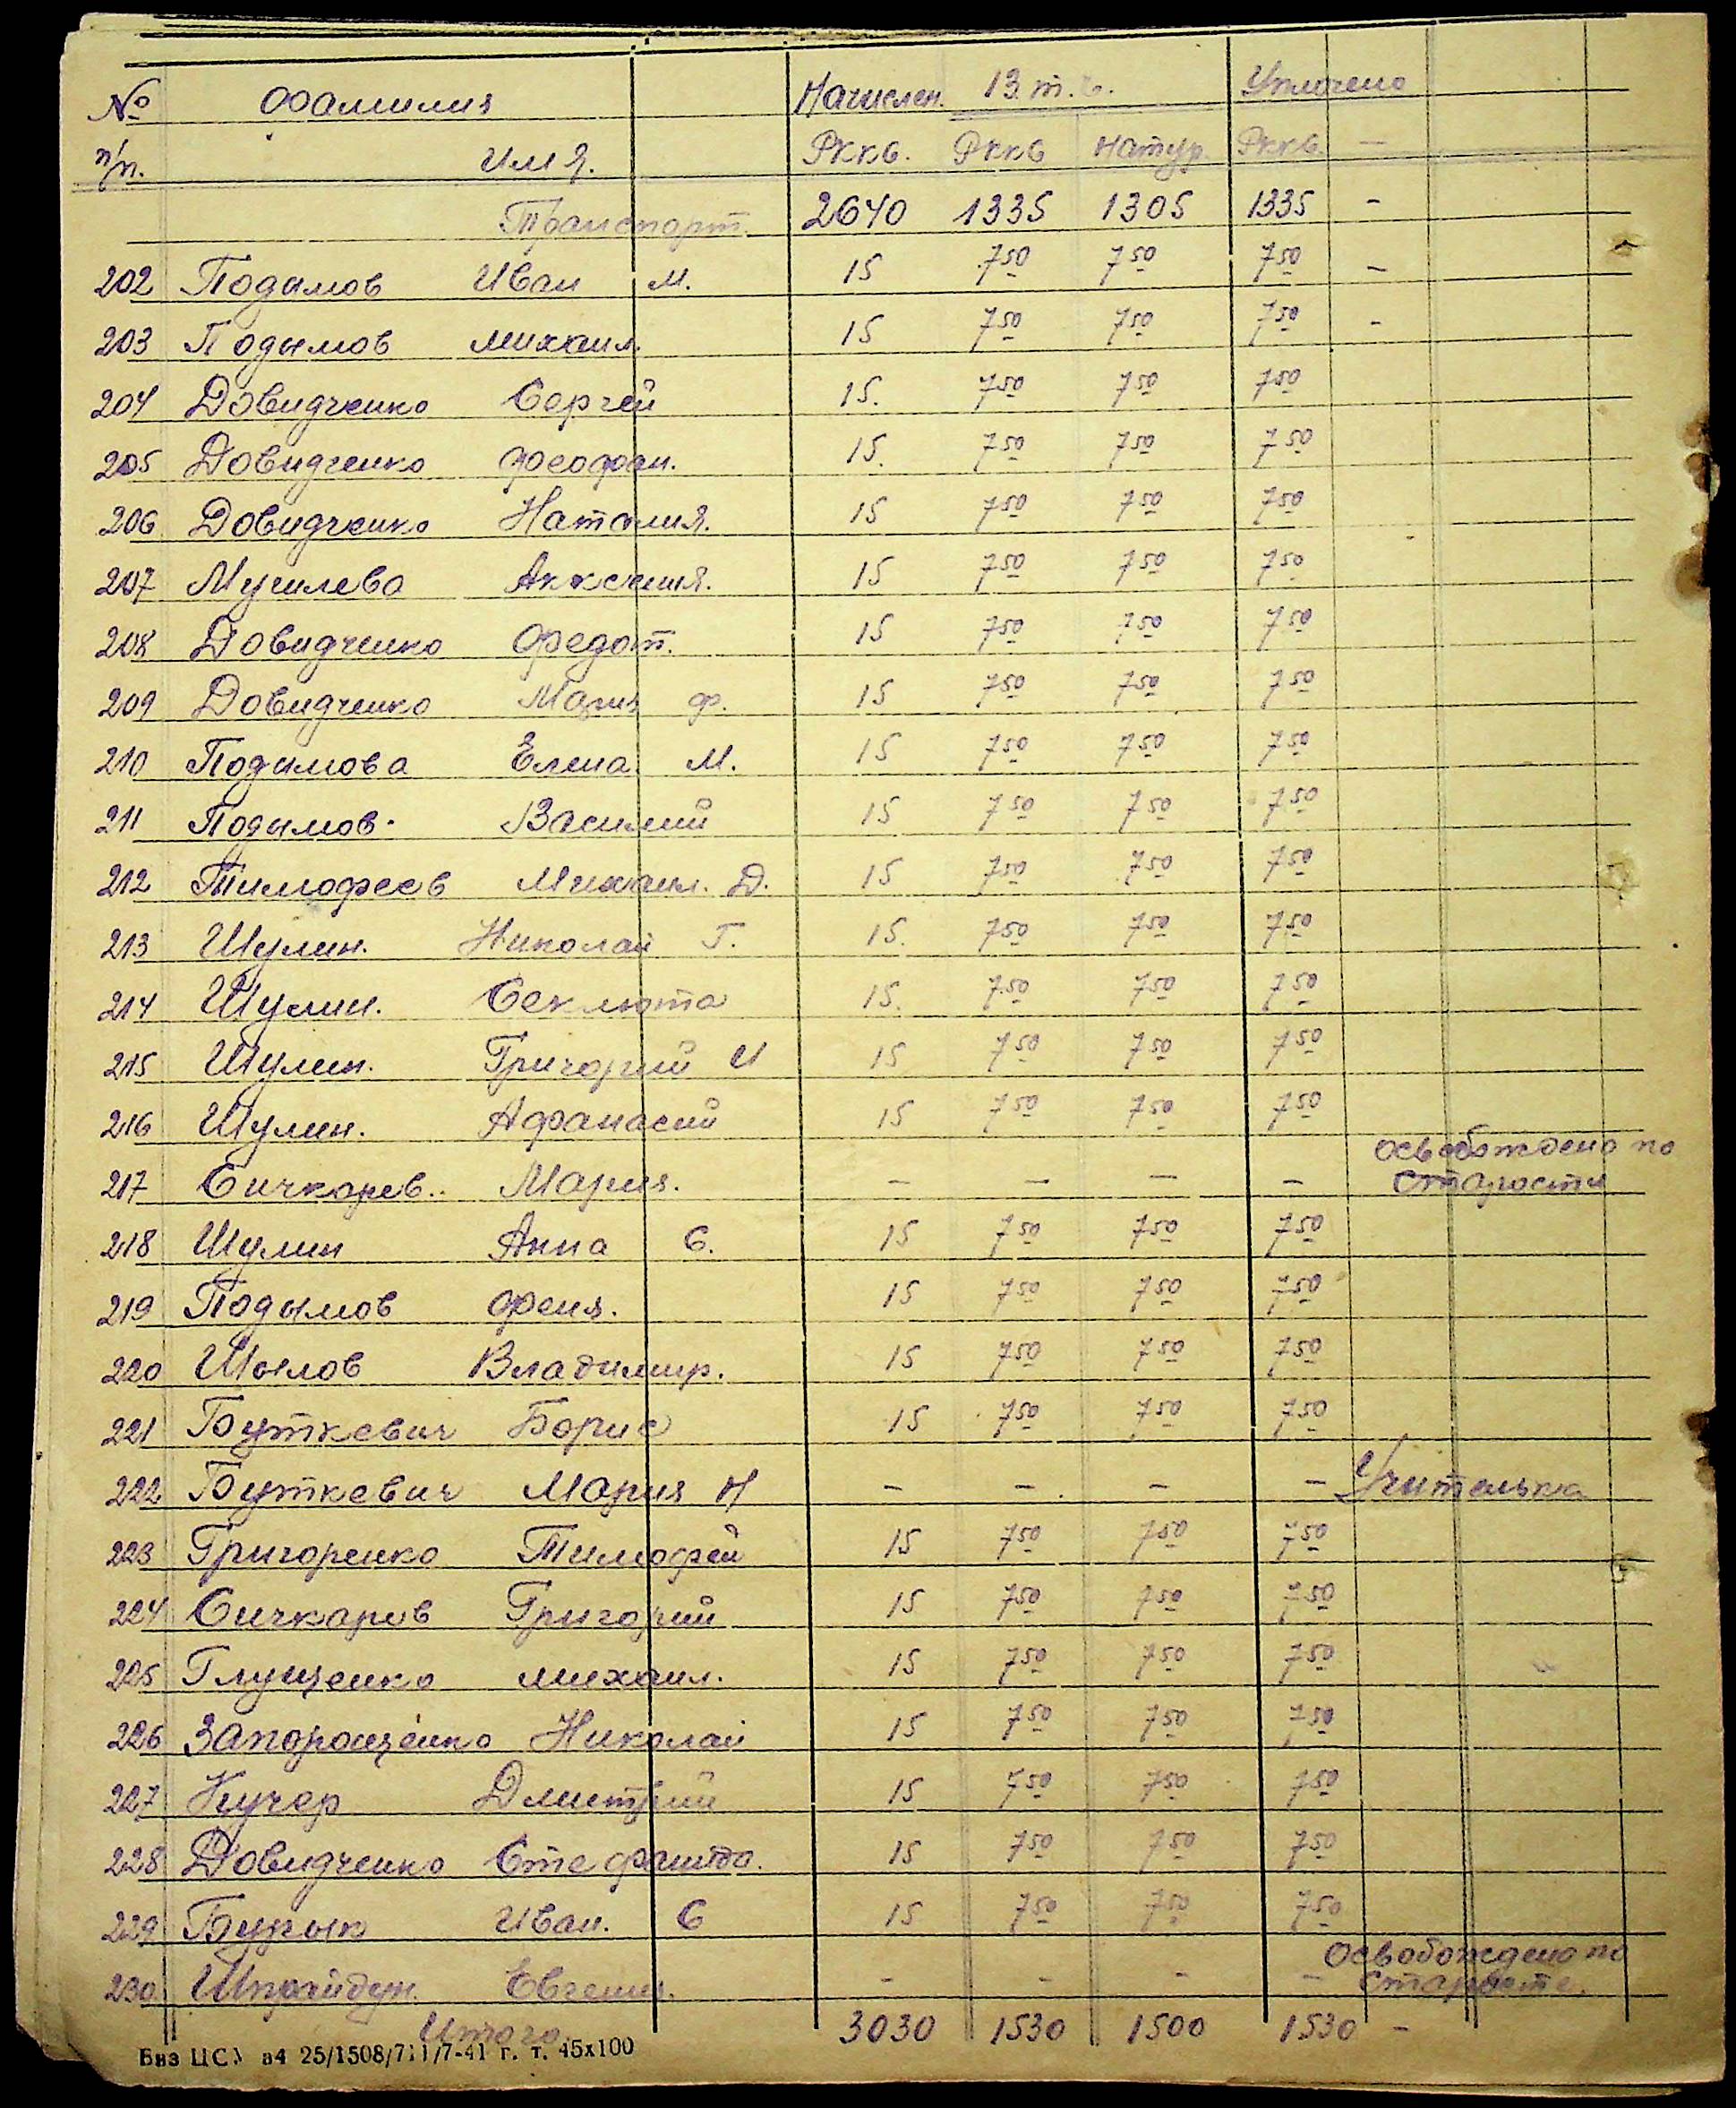 № Фамилия Начислен. 13 т.ч. Уплочено
п/п. Имя. Рккв. Рккв Натур. Рккв. —
Транспорт. 2640 1335 1305 1335 -
202 Подымов Иван М. 15 7 50 7 50 7 50 -
203 Подымов михаил. 15 7 50 7 50 7 50 -
204 Довидченко Сергей 15. 7 50 7 50 7 50
205 Довидченко феофан. 15. 7 50 7 50 7 50
206 Довидченко Наталия. 15 7 50 7 50 7 50
207 Мугилева 15 7 50 7 50 7 50
208 Довидченко Федот. 15 7 50 7 50 7 50
209 Довидченко Мария ф. 15 7 50 7 50 7 50
210 Подымова Елена М. 15 7 50 7 50 7 50
211 Подымов. Василий 15 7 50 7 50 7 50
212 Тимофеев Михаил. Д. 15 7 50 7 50 7 50
213 Шулин. Николай Г. 15. 7 50 7 50 7 50
214 Шулин. Секлюта 15. 7 50 7 50 7 50
215 Шулин. Григорий И 15 7 50 7 50 7 50
216 Шулин. Афанасий 15 7 50 7 50 7 50
освобождено по
217 Сичкарев.. Мария. — — — — старости
218 Шулин Анна С. 15 7 50 7 50 7 50
219 Подымов феня. 15 7 50 7 50 7 50
220 Шылов Владимир. 15 7 50 7 50 7 50
221 Буткевич Борис 15 7 50 7 50 7 50
222 Буткевич Мария Н — — — — Учителька
223 Григоренко Тимофей 15 7 50 7 50 7 50
224 Сичкарев Григорий 15 7 50 7 50 7 50
225 Глущенко михаил. 15 7 50 7 50 7 50
226 Запорощенко Николай 15 7 50 7 50 7 50
227 Кучер Дмитрий 15 7 50 7 50 7 50
228 Довидченко 15 7 50 7 50 7 50
229 Иван. С 15 7 50 7 50 7 50
Освобождено по
230 Евгения. - - - -
Итого. 3030 1530 1500 1530 -
25/1508/711/7-41 г. т. 45х100